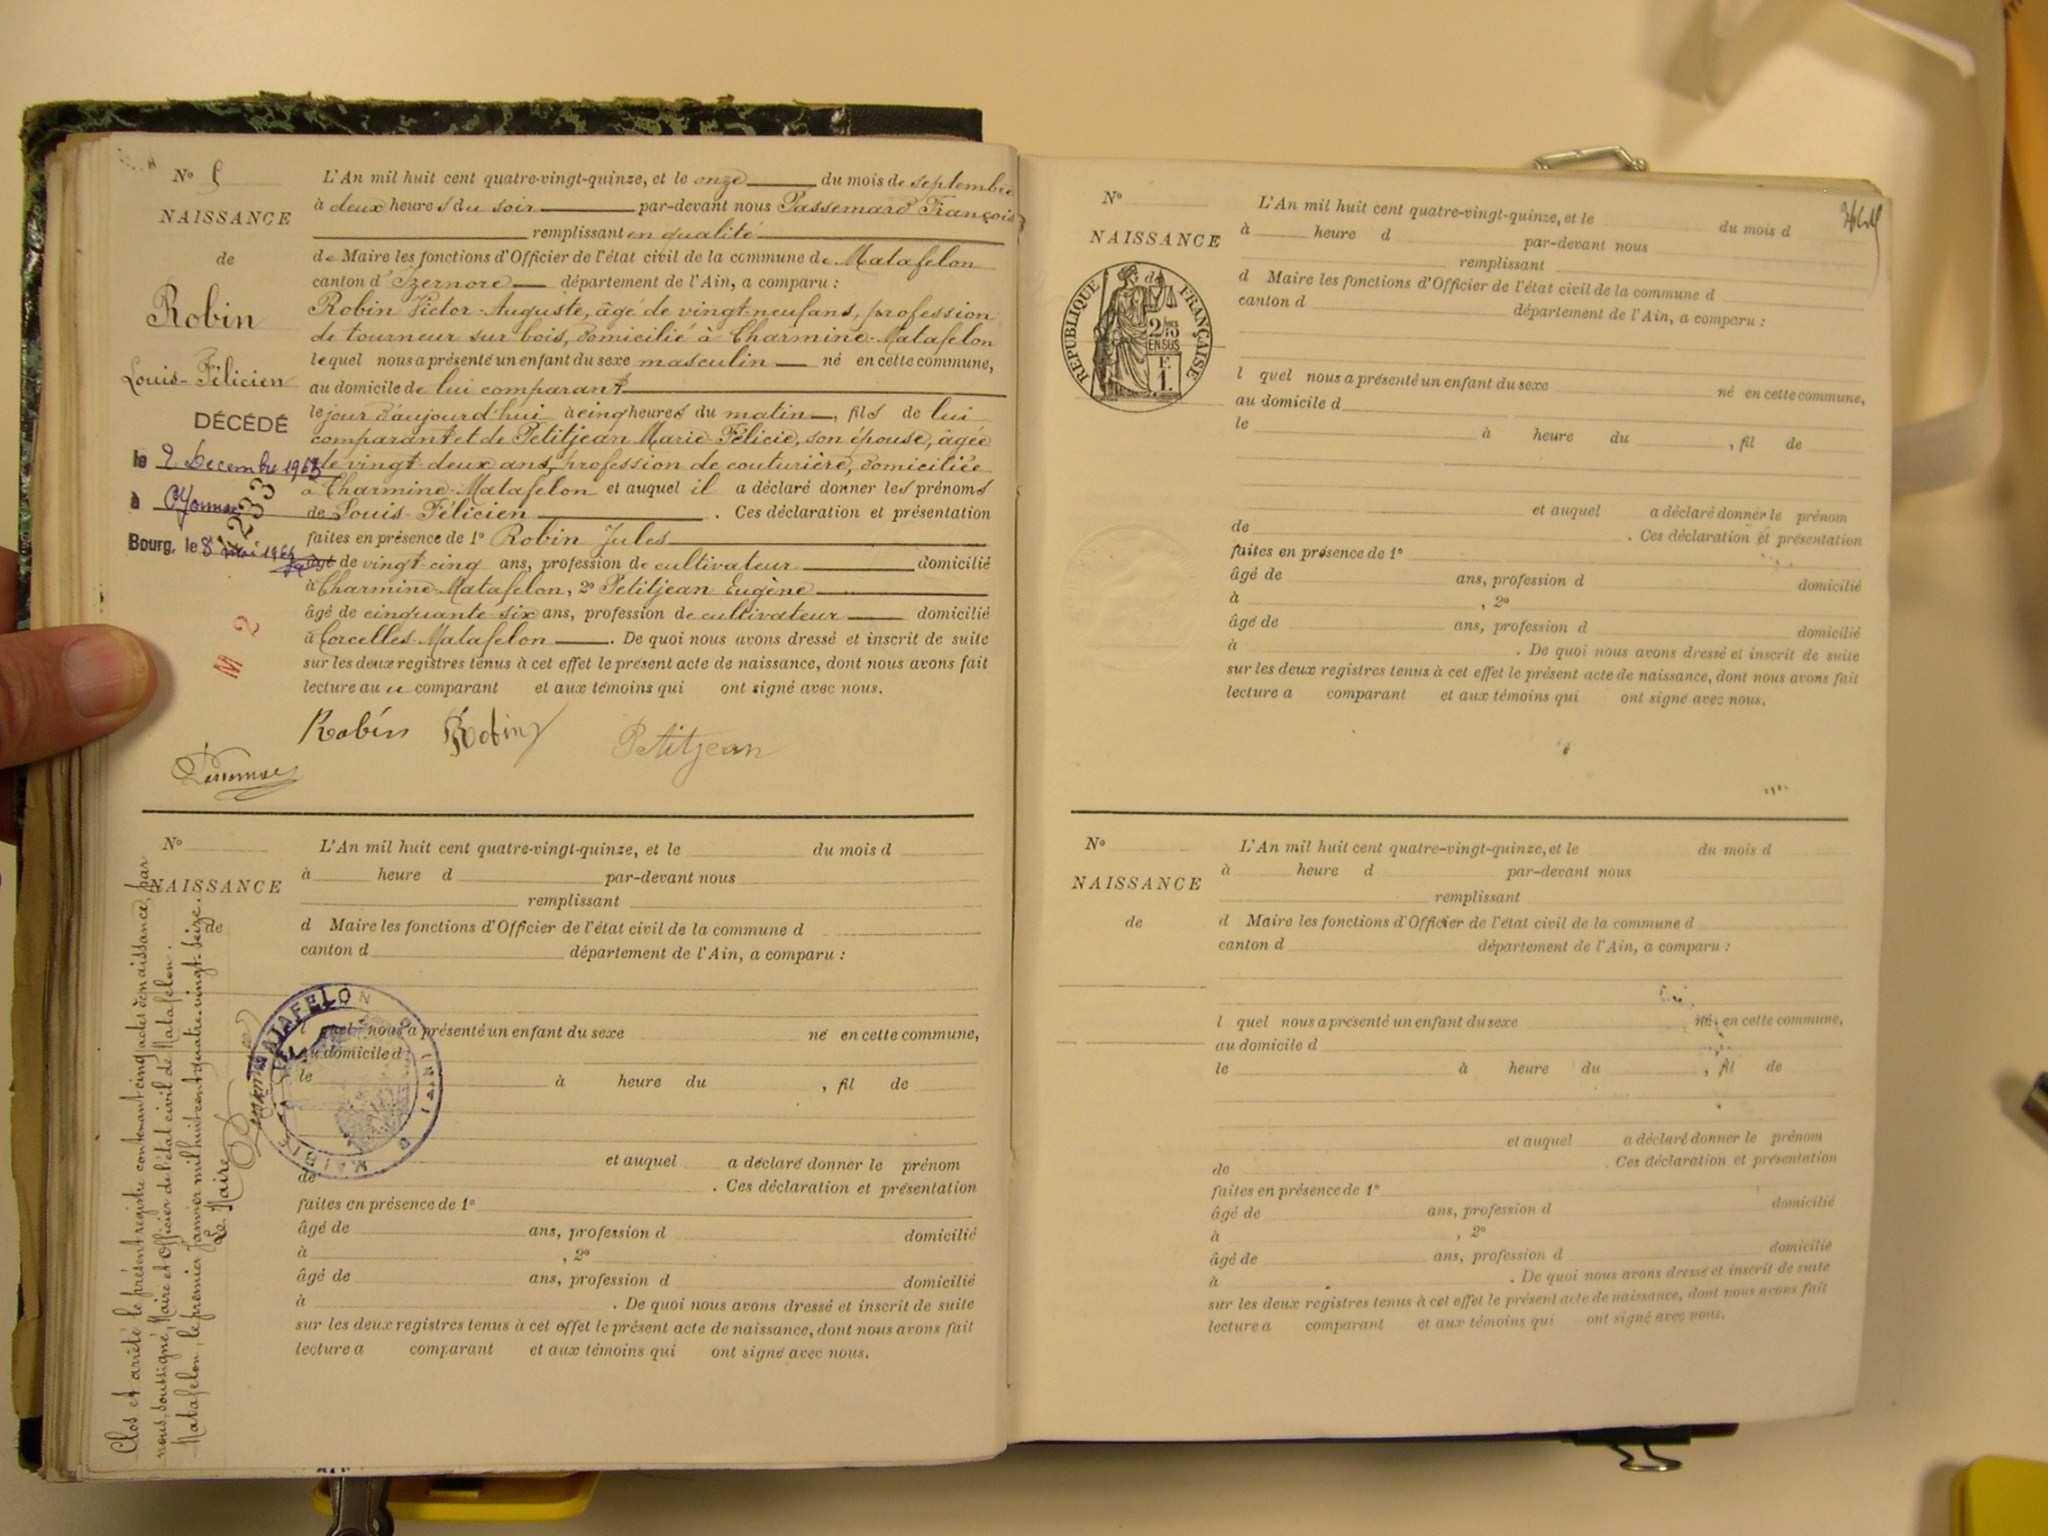 N° 5
NAISSANCE
de
Robin
Louis-Félicien
DÉCÉDÉ
le 2 Decembre
à Oyonnax
1233
Bourg, le 8 mai
M 2
L'An mil huit cent quatre-vingt-quinze, et le onze du mois de septembre
à deux heures du soir par-devant nous Passemard François
remplissant en qualité
de Maire les fonctions d'Officier de l'état civil de la commune de Matafelon
canton d'Izernore département de l'Ain, a comparu :
Robin Victor-Auguste, âgé de vingt-neuf ans, profession
de tourneur sur bois, domicilié à Charmine-Matafelon
lequel nous a présenté un enfant du sexe masculin né en cette commune,
au domicile de lui comparant
le jour d'aujourd'hui à cinq heures du matin, fils de lui
comparant et de Petitjean Marie-Félicie, son épouse, âgée
de vingt-deux ans, profession de couturière, domiciliée
à Charmine-Matafelon et auquel il a déclaré donner les prénoms
de Louis-Félicien . Ces déclaration et présentation
faites en présence de 1° Robin Jules
âgé de vingt cinq ans, profession de cultivateur domicilié
à Charmine-Matafelon, 2° Petitjean Eugène
âgé de cinquante six ans, profession de cultivateur domicilié
à Corcelles-Matafelon . De quoi nous avons dressé et inscrit de suite
sur les deux registres tenus à cet effet le présent acte de naissance, dont nous avons fait
lecture au comparant et aux témoins qui ont signé avec nous.
Robin Robin Petitjean
N°
NAISSANCE
de
L'An mil huit cent quatre-vingt-quinze, et le du mois d
à heure d par-devant nous
remplissant
d Maire les fonctions d'Officier de l'état civil de la commune d
canton d département de l'Ain, a comparu :
l quel nous a présenté un enfant du sexe né en cette commune,
au domicile d
le à heure du , fil de
et auquel a déclaré donner le prénom
de . Ces déclaration et présentation
faites en présence de 1°
âgé de ans, profession d domicilié
à , 2°
âgé de ans, profession d domicilié
à . De quoi nous avons dressé et inscrit de suite
sur les deux registres tenus à cet effet le présent acte de naissance, dont nous avons fait
lecture a comparant et aux témoins qui ont signé avec nous.
Clos et arrêté le présent registre contenant cinq actes de naissance, par
nous, soussigné, Maire et Officier de l'état civil de Matafelon.
Matafelon, le premier Janvier mil huit cent quatre-vingt-seize.
Le Maire
MAIRIE DE MATAFELON
N°
NAISSANCE
RÉPUBLIQUE FRANÇAISE
2/10es
EN SUS
F.
1.
L'An mil huit cent quatre-vingt-quinze, et le du mois d
à heure d par-devant nous
remplissant
d Maire les fonctions d'Officier de l'état civil de la commune d
canton d département de l'Ain, a comparu :
l quel nous a présenté un enfant du sexe né en cette commune,
au domicile d
le à heure du , fil de
et auquel a déclaré donner le prénom
de . Ces déclaration et présentation
faites en présence de 1°
âgé de ans, profession d domicilié
à , 2°
âgé de ans, profession d domicilié
à . De quoi nous avons dressé et inscrit de suite
sur les deux registres tenus à cet effet le présent acte de naissance, dont nous avons fait
lecture a comparant et aux témoins qui ont signé avec nous.
N°
NAISSANCE
de
L'An mil huit cent quatre-vingt-quinze, et le du mois d
à heure d par-devant nous
remplissant
d Maire les fonctions d'Officier de l'état civil de la commune d
canton d département de l'Ain, a comparu :
l quel nous a présenté un enfant du sexe né en cette commune,
au domicile d
le à heure du , fil de
et auquel a déclaré donner le prénom
de . Ces déclaration et présentation
faites en présence de 1°
âgé de ans, profession d domicilié
à , 2°
âgé de ans, profession d domicilié
à . De quoi nous avons dressé et inscrit de suite
sur les deux registres tenus à cet effet le présent acte de naissance, dont nous avons fait
lecture a comparant et aux témoins qui ont signé avec nous.